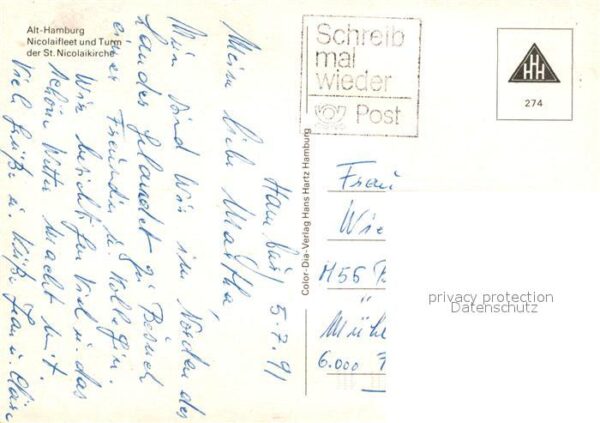 Alt-Hamburg
Nicolaifleet und Turm
der St. Nicolaikirche
Schreib
mal
wieder
Post
HHH
274
Color-Dia-Verlag Hans Hartz Hamburg
Hamburg 5.7.91
Meine liebe Martha,
Nun sind Wir im Norden des
Landes gelandet zu Besuch
einer Freundin u. Kollegin.
Wir besichtigen Viel u. das
schöne Wetter macht mit.
Viele Grüße u. Küße
Frau
Wie
"
6.000 F
privacy protection
Datenschutz